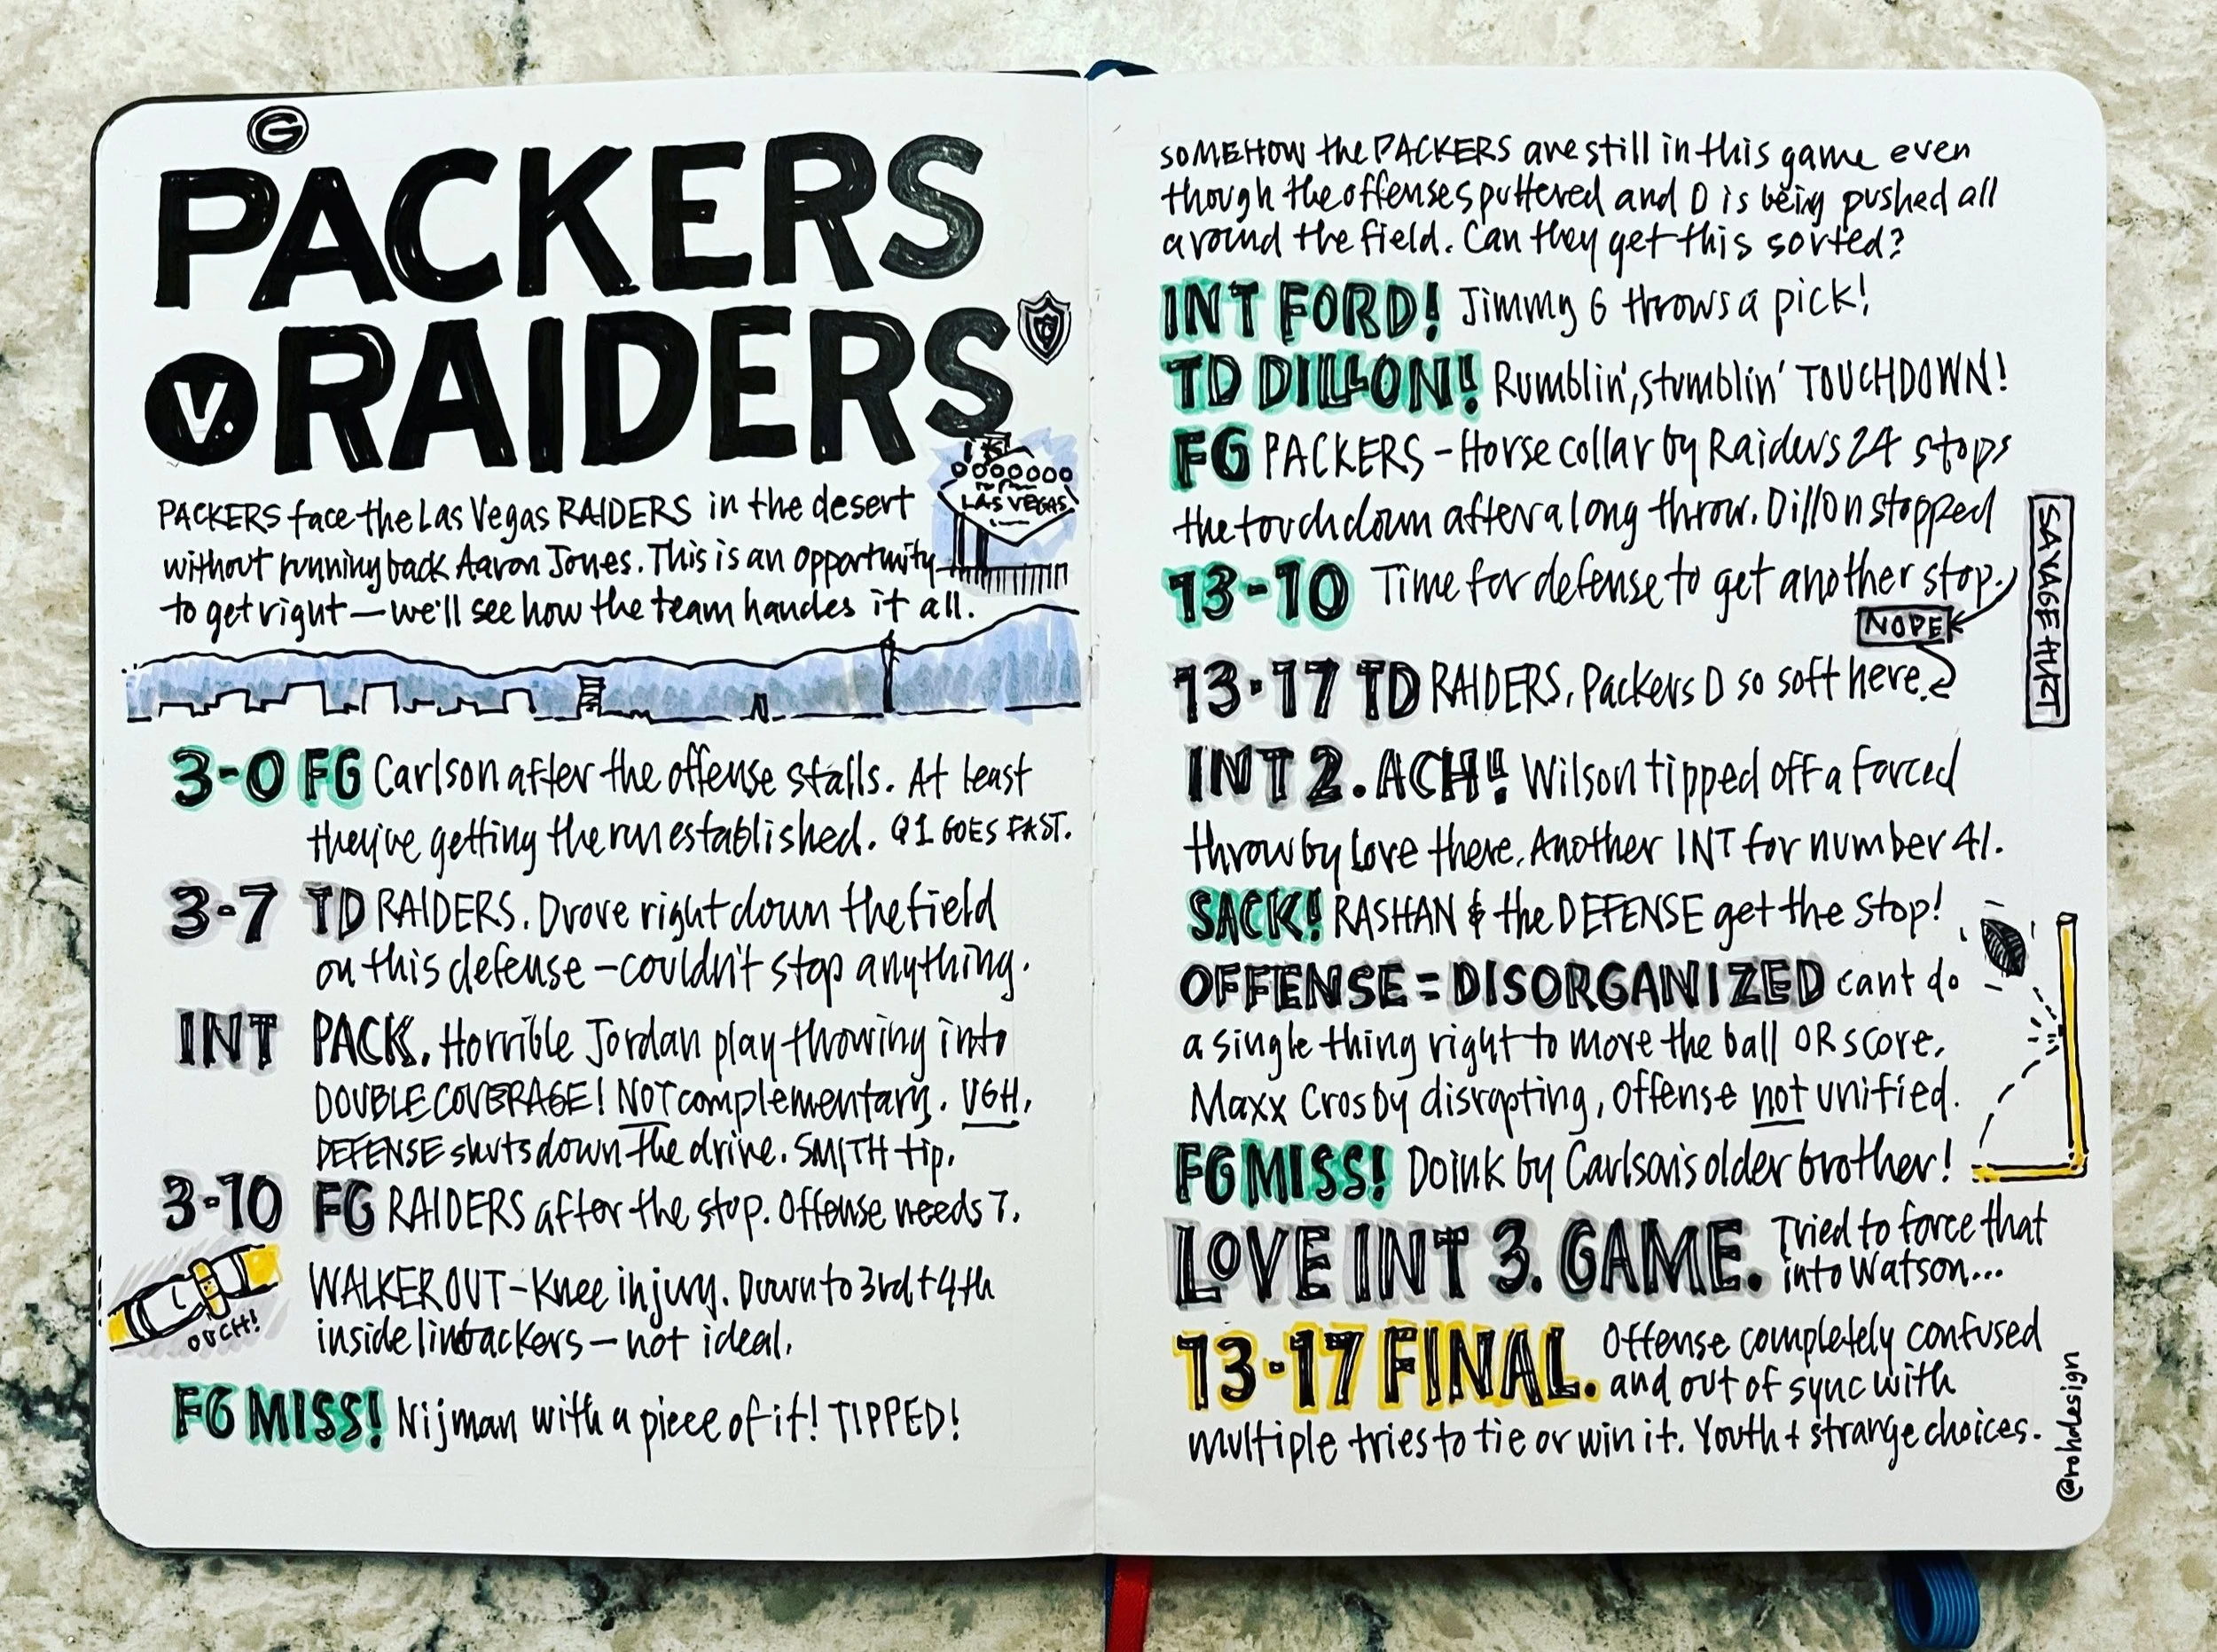 G
PACKERS
V. RAIDERS
LAS VEGAS
PACKERS face the Las Vegas RAIDERS in the desert
without running back Aaron Jones. This is an opportunity
to get right — we'll see how the team handes it all.
3-0 FG Carlson after the offense stalls. At least
they're getting the run established. Q1 GOES FAST.
3-7 TD RAIDERS. Drove right down the field
on this defense — couldn't stop anything.
INT PACK. Horrible Jordan play throwing into
DOUBLE COVERAGE! NOT complementary. UGH.
DEFENSE shuts down the drive. SMITH tip.
3-10 FG RAIDERS after the stop. Offense needs 7.
OUCH!
WALKER OUT — Knee injury. Down to 3rd + 4th
inside linebackers — not ideal.
FG MISS! Nijman with a piece of it! TIPPED!
SOMEHOW the PACKERS are still in this game even
though the offense sputtered and D is being pushed all
around the field. Can they get this sorted?
INT FORD! Jimmy G throws a pick!
TD DILLON! Rumblin', stumblin' TOUCHDOWN!
FG PACKERS - Horse collar by Raiders 24 stops
the touchdown after a long throw. Dillon stopped
13-10 Time for defense to get another stop.
NOPE
SAVAGE HURT
13-17 TD RAIDERS. Packers D so soft here.
INT 2. ACH!! Wilson tipped off a forced
throw by Love there. Another INT for number 41.
SACK! RASHAN & the DEFENSE get the stop!
OFFENSE = DISORGANIZED cant do
a single thing right to move the ball OR score.
Maxx Crosby disrupting, offense not unified.
FG MISS! Doink by Carlson's older brother!
LOVE INT 3. GAME. Tried to force that
into Watson...
13-17 FINAL. Offense completely confused
and out of sync with
multiple tries to tie or win it. Youth + strange choices.
@rohdesign